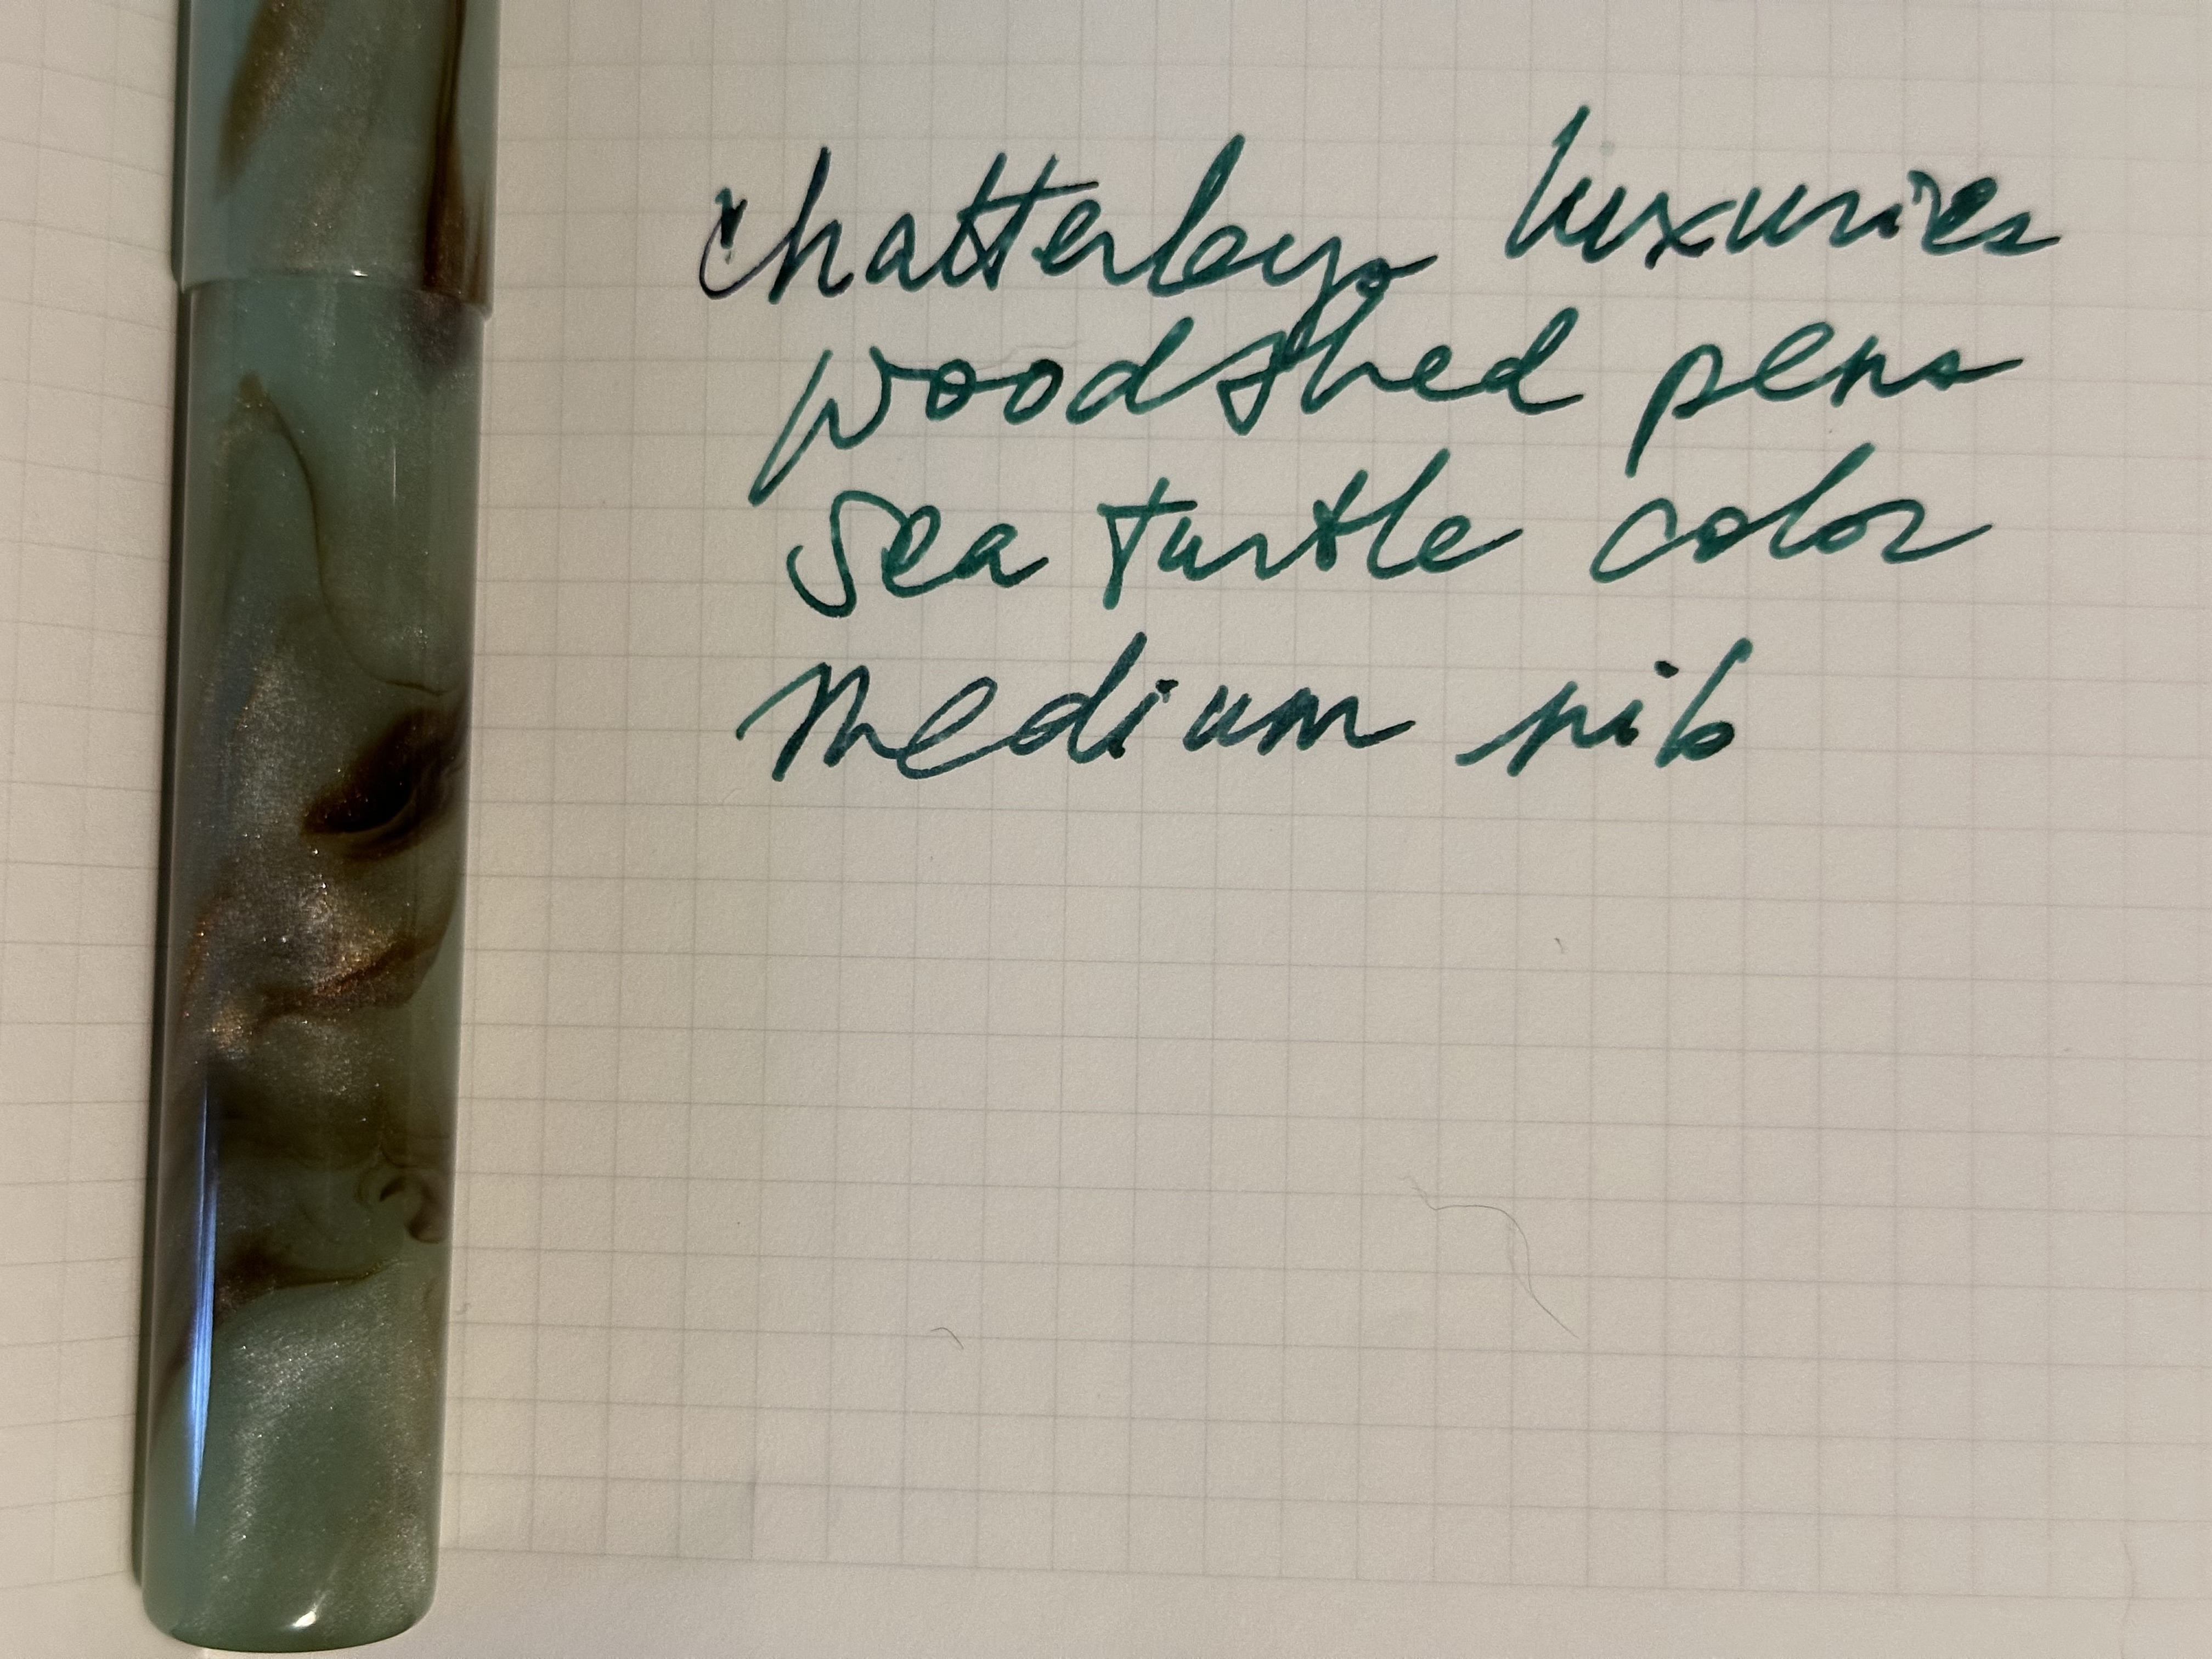 chatterleys luxuries
woodshed pens
Sea turtle color
medium nib